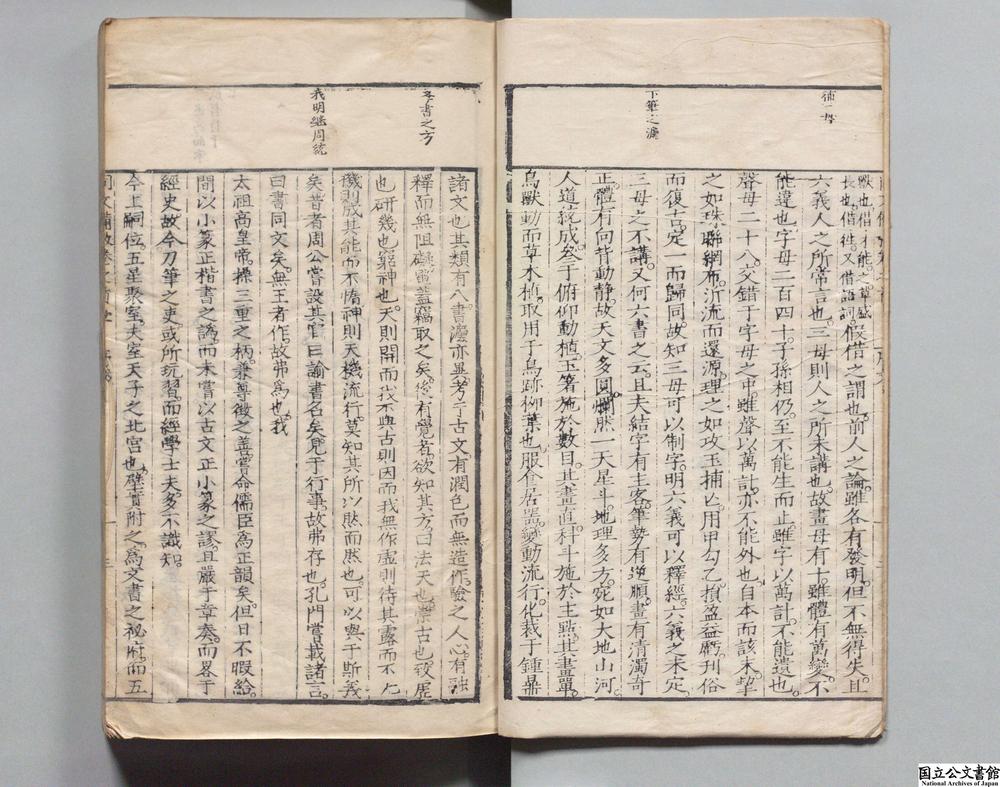 補一母
下筆之灋
獸也借才能之𦏧盛
長也借徃又借語詞假借之謂也前人之論雖各有發明但不無得失且
六義人之所常言也三母則人之所未講也故畫母有十雖體有萬變不
能違也字母二百四十子孫相仍至不能生而止雖字以萬計不能遺也
聲母二十八交錯于字母之中雖聲以萬計亦不能外也自本而該末挈
之如珠聯網布沂流而還源理之如攻玉捕亾用甲勾乙損盈益虧刊俗
而復古定一而歸同故知三母可以制字明六義可以釋經六義之未定
三母之不講又何六書之云且夫結字有主客筆勢有逆順畫有清濁奇
正體有向背動静故天文多圓爛肰一天星斗地理多方死如大地山河
人道統成叅于俯仰動植玉箸施於數目其畫直科斗施於主㸃其畫單
鳥獸動而草木植取用于鳥跡栁葉也服食居器變動流行化裁于鍾鼎
字書之方
我明継周統
諸文也其類有八書灋亦異考于古文有潤色而無造作險之人心有融
釋而無阻礙蓋竊取之矣後有覺者欲知其方曰法天也樂古也致虛
也研幾也窮神也天則開而我不與古則因而我無作虛則待其露而不
機則成其能而不惰神則天機流行莫知其所以肰而然也可以與于斯義
矣昔者周公嘗設其官曰諭書名矣見于行事故弗存也孔門嘗載諸言
曰書同文矣無王者作故弗為也我
太祖高皇帝操三重之柄兼尊徵之善嘗命儒臣為正韻矣但日不暇給
間以小篆正楷書之譌而未嘗以古文正小篆之謬且嚴于章奏而畧于
經史故今刀筆之吏或所玩習而經學士夫多不識知
今上嗣位五星聚室夫室天子之北宫也壁實附之為文書之秘府而五
三
国立公文書館
National Archives of Japan